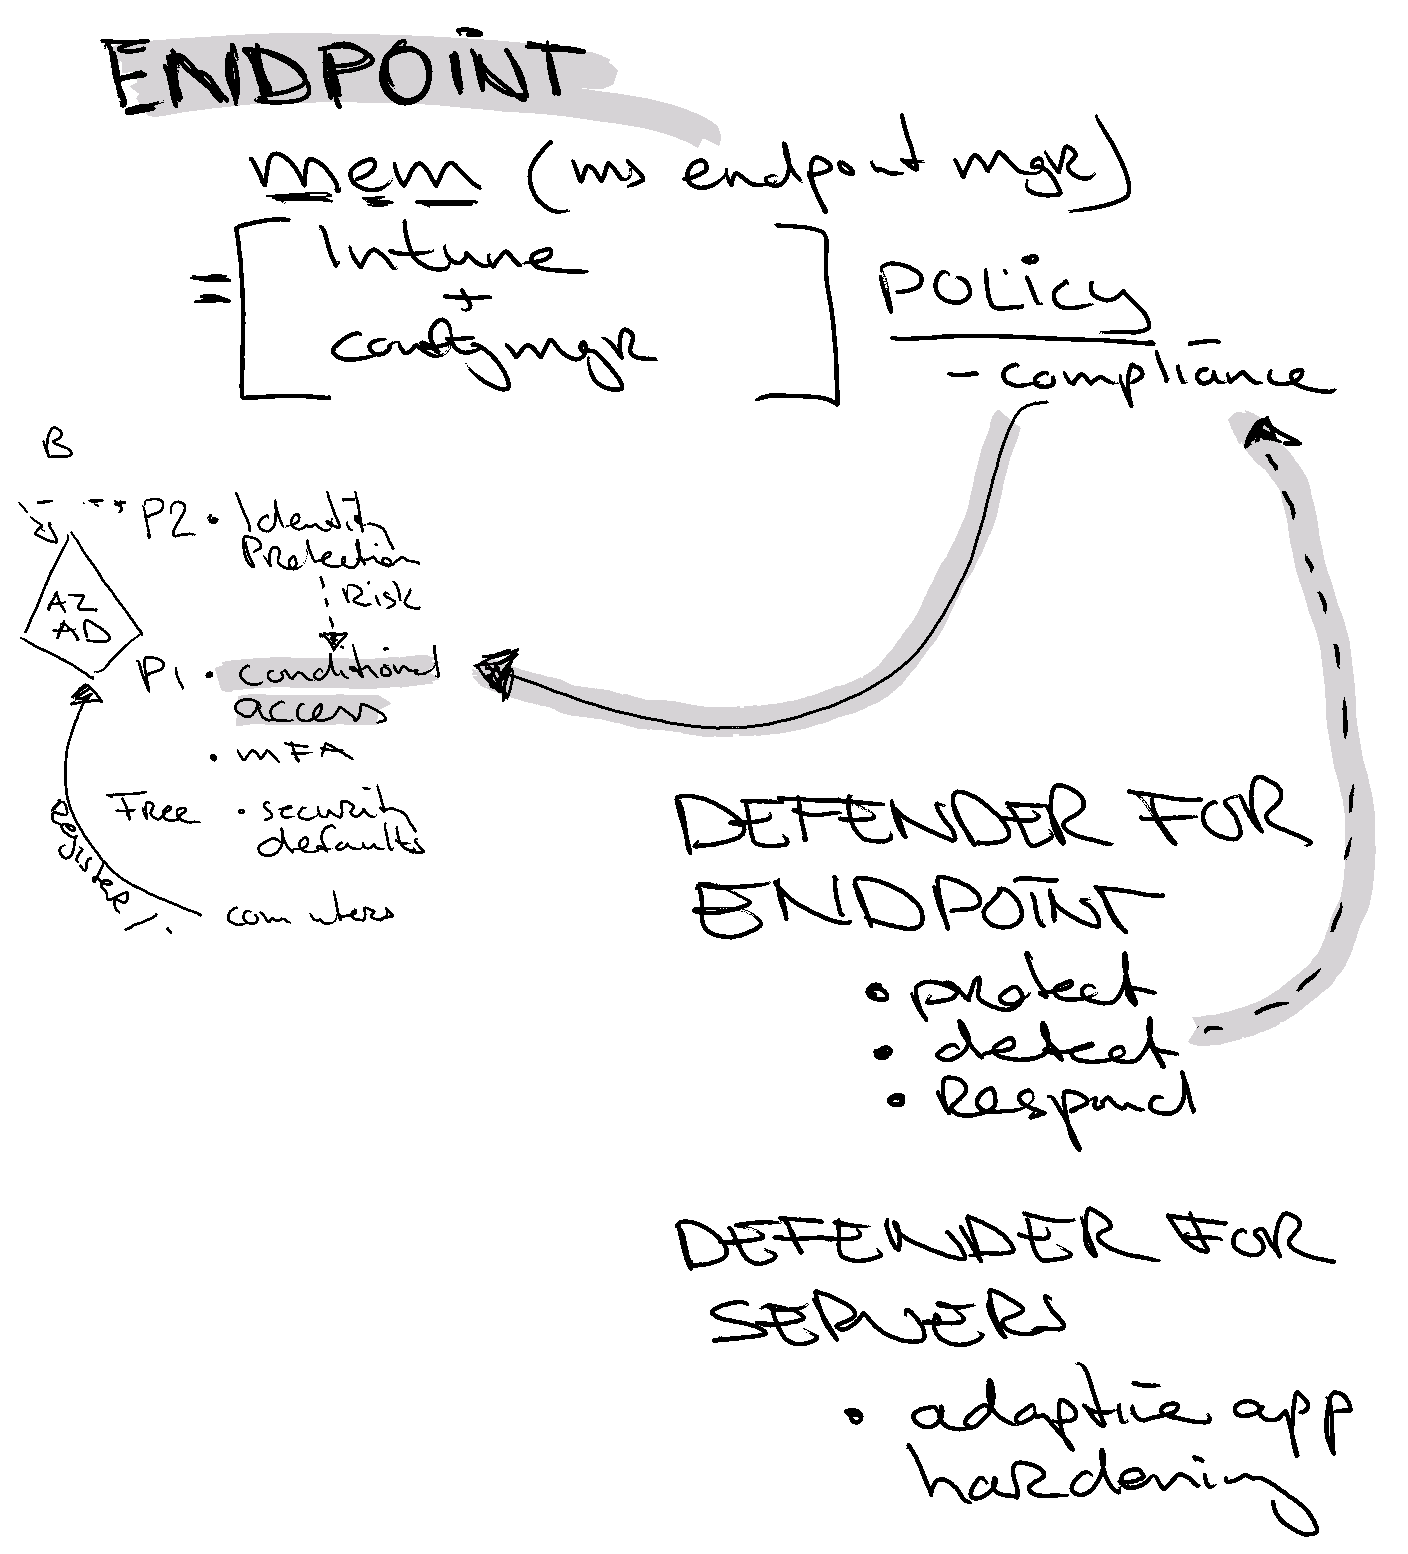 ENDPOINT
mem (ms endpoint mgr)
= [ Intune
+
configmgr ]
POLICY
- compliance
B
P2 • Identity
Protection
Risk
AZ
AD
P1 • conditional
access
• MFA
Free • security
defaults
register
DEFENDER FOR
ENDPOINT
• protect
• detect
• Respond
DEFENDER FOR
SERVERS
• adaptive app
hardening